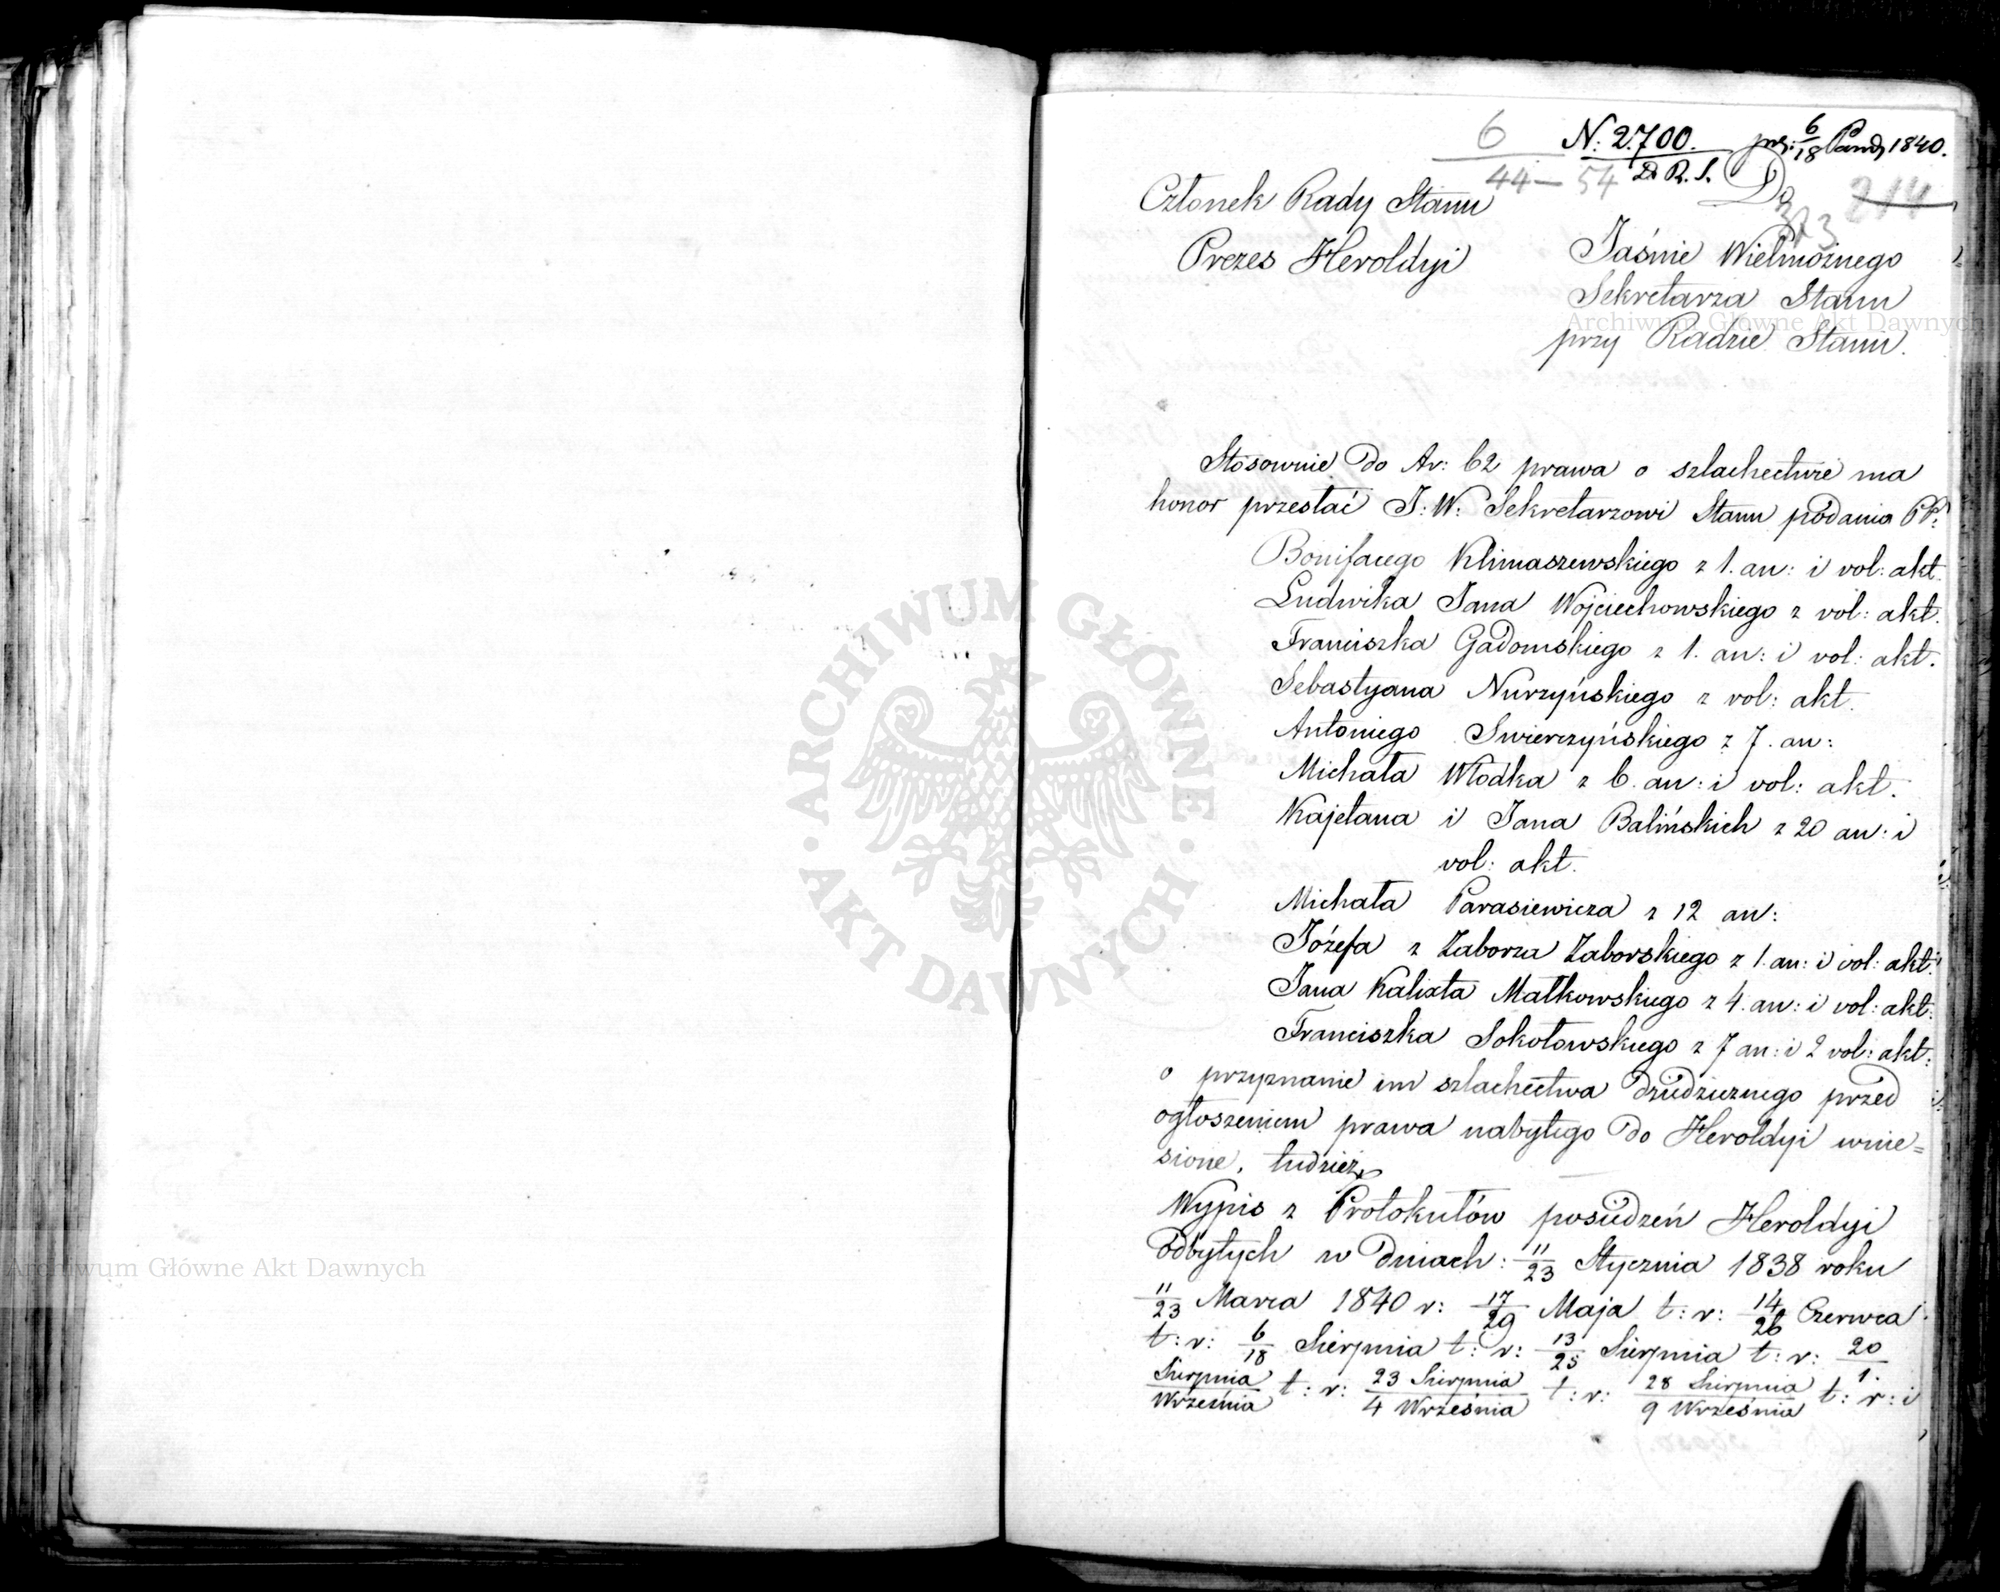 6 N: 2700. prz: 6/18 Paźdz 1840.
44 – 54 D. R. S.
Do
313 214
Członek Rady Stanu
Prezes Heroldyi
Jaśnie Wielmożnego
Sekretarza Stanu
przy Radzie Stanu.
Stosownie do Ar: 62 prawa o szlachectwie ma
honor przesłać J: W: Sekretarzowi Stanu podania PP:
Bonifacego Klimaszewskiego z 1. an: i vol: akt.
Ludwika Jana Wojciechowskiego z vol: akt.
Franciszka Gadomskiego z 1. an: i vol: akt.
Sebastyana Nurzyńskiego z vol: akt.
Antoniego Swierczyńskiego z 7. an:
Michała Włodka z 6. an: i vol: akt.
Kajetana i Jana Balińskich z 20 an: i
vol: akt.
Michała Parasiewicza z 12 an:
Józefa z Zaborza Zaborskiego z 1. an: i vol: akt:
Jana Kalixta Małkowskiego z 4. an: i vol: akt:
Franciszka Sokołowskiego z 7 an: i 2 vol: akt:
o przyznanie im szlachectwa dziedzicznego przed
ogłoszeniem prawa nabytego do Heroldyi wnie=
sione, tudzież
Wypis z Protokułów posiedzeń Heroldyi
odbytych w dniach: 11/23 Stycznia 1838 roku
11/23 Marca 1840 r: 17/29 Maja t: r: 14/26 Czerwca
t: r: 6/18 Sierpnia t: r: 13/25 Sierpnia t: r: 20/1.
Sierpnia/Września t: r: 23 Sierpnia/4 Września t: r: 28 Sierpnia/9 Września t: r: i
Archiwum Główne Akt Dawnych
Archiwum Główne Akt Dawnych
ARCHIWUM GŁÓWNE · AKT DAWNYCH ·